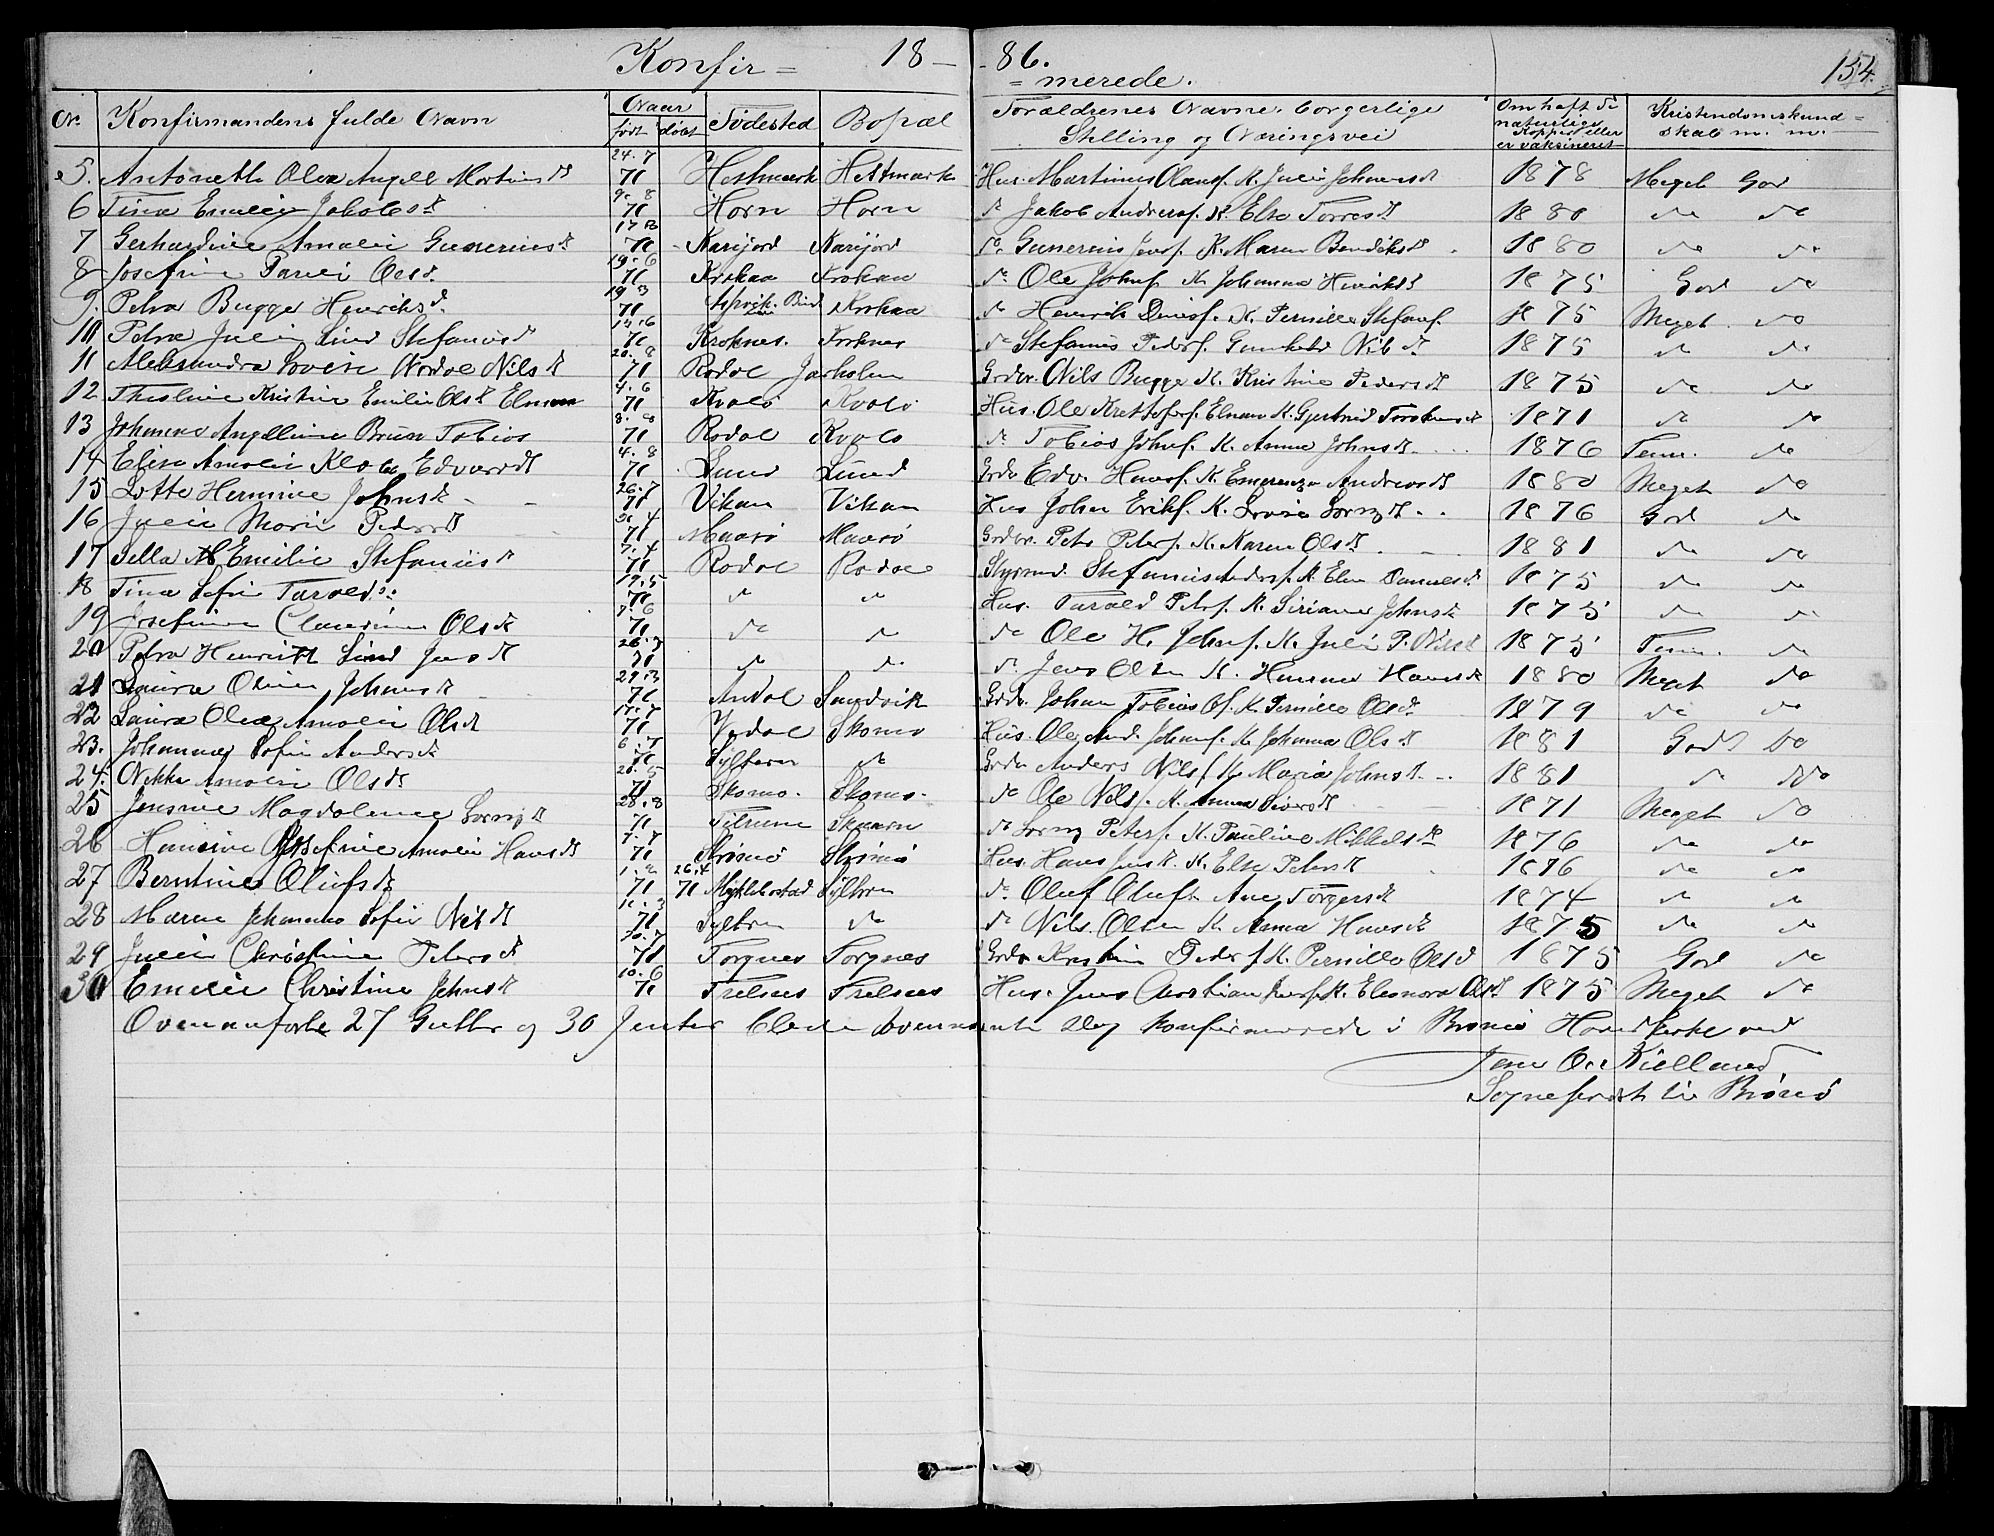 Konfir = 18 - - 86. = merede. 154.
Nr. Konfirmandens fulde Navn Naar født døbt Fødested Bopæl Forældrenes Navne, borgerlige Stilling og Næringsvei Om haft de naturlige Kopper eller er vaksineret Kristendomskund= skab m. m.
5. Antonette Olea Angell Martinsdt 24.7 71 Hestmark Hestmark Hus. Martinus Olauss. K. Julie Johansdt 1878 Meget God
6 Tina Emilie Jakobsdt 9.8 71 Horn Horn do Jakob Anderss. K. Else Torresdt 1880 do do
7 Gerhardine Amalie Gunneriusdt 17.3 71 Karijord Karijord do Gunerius Jenss. K. Maren Bendiksdt 1880 do do
8 Josefine Parelie Olsdt 19.6 71 Krokaa Krokaa do Ole Johnss. K. Johanna Henriksdt 1875 God do
9. Petra Bugge Henriksd. 19.3 71 Bind. Krokaa do Henrik K. Pernille Stefans. 1875 Meget do
10 Petra Julie Lind Stefanusd 14.6 71 Kroknes. Kroknes do Stefanus Peders. Gunhild Nilsdt 1875 do do
11 Aleksandra Lovise Nordøl Nilsdt 20.8 71 Rodøl Jarholm Grdbr. Nils Bugge K. Kristine Pedersdt 1875 do do
12 Theoline Kristine Emilie Olsdt Elnan 4.6 71 Kvalø Kvalø Hus. Ole Kristofers. Elnan K. Gjertrud Torstensdt 1871 do do
13 Johanna Angelline Brun Tobias 8.8 71 Rodøl Kvalø do Tobias Johns. K. Anna Johnsdt 1876 Tem. do
14 Elise Amalie Edvardsdt 4.8 71 Lund Lund Grdbr Edv. Hanss. K. Emerenze Andreasdt 1880 Meget do
15 Lotte Hermine Johnsdt 26.7 71 Vikan Vikan Hus John Eriks. K. Lovise Lorenzdt 1876 God do
16 Julie Marie Pedersdt 71 Maarø Maarø Grdbr. Peter Peters. K. Karen Olsdt 1881 do do
17 Sella Emilie Stefanusdt 7.4 71 Rodøl Rodøl Stefanus Anders. K. Elen Danielsdt 1875 do do
18 Tina Sofie Taraldsdt 19.5 71 do do Hus. Tarald Peters. K. Siriane Johnsdt 1875 do do
19 Josefine Claudine Olsdt 71 do do do Ole H. Johns. K. Julie P. Nilsdt 1875 do do
20 Petra Henriette Lind Jensdt 71 do do do Jens Olsen K. Hanna Hansdt 1880 Tem. do
21 Laura Oline Johansdt 29.3 71 Andøl Sandvik Grdbr. Johan Tobias Ols. K. Pernille Olsdt 1879 Meget do
22 Laura Olea Amalie Olsdt 71 Skomo Hus. Ole And. Johns. K. Johanna Olsdt 1881 do do
23. Johanna Sofie Andersdt 6.7 71 Syltern do Grdbr Anders Nils. K. Maria Johnsdt 1881 God do
24. Nikka Amalie Olsdt 20.5 71 Skomo. Skomo. do Ole Nils. K. Anna Siversdt 1871 do do
25 Jensine Magdalene Lorenzdt 28.8 71 Tilrem Skaarn do Lorenz Peters. K. Pauline Mikkelsdt 1876 Meget do
26 Hansine Josefine Amalie Hansdt 7.7 71 Strømø Strømø Hus. Hans Jens K. Else Petersdt 1876 do do
27 Berntine Olufsdt 71 26.4 71 Møklebostad Syltern do Oluf Olufs. Ane Torgersdt 1874 do do
28 Maren Johanna Sofie Nilsdt 71 Syltern do do Nils Olsen K. Anna Hansdt 1875 do do
29 Julie Christine Petersdt 30.7 71 Torgnes Torgnes Grdbr Kristian Peders. K. Pernille Olsd 1875 God do
30 Emilie Christine Johnsdt 10.6 71 Trelnes Trelnes Hus. Jens Christian Jens. K. Eleonora Olsdt 1875 Meget do
Ovenanførte 27 Gutter og 30 Jenter bleve ovennævnte Dag konfirmerede i Brønø Hovedkirke ved
Jens Kielland
Sogneprest til Brønø